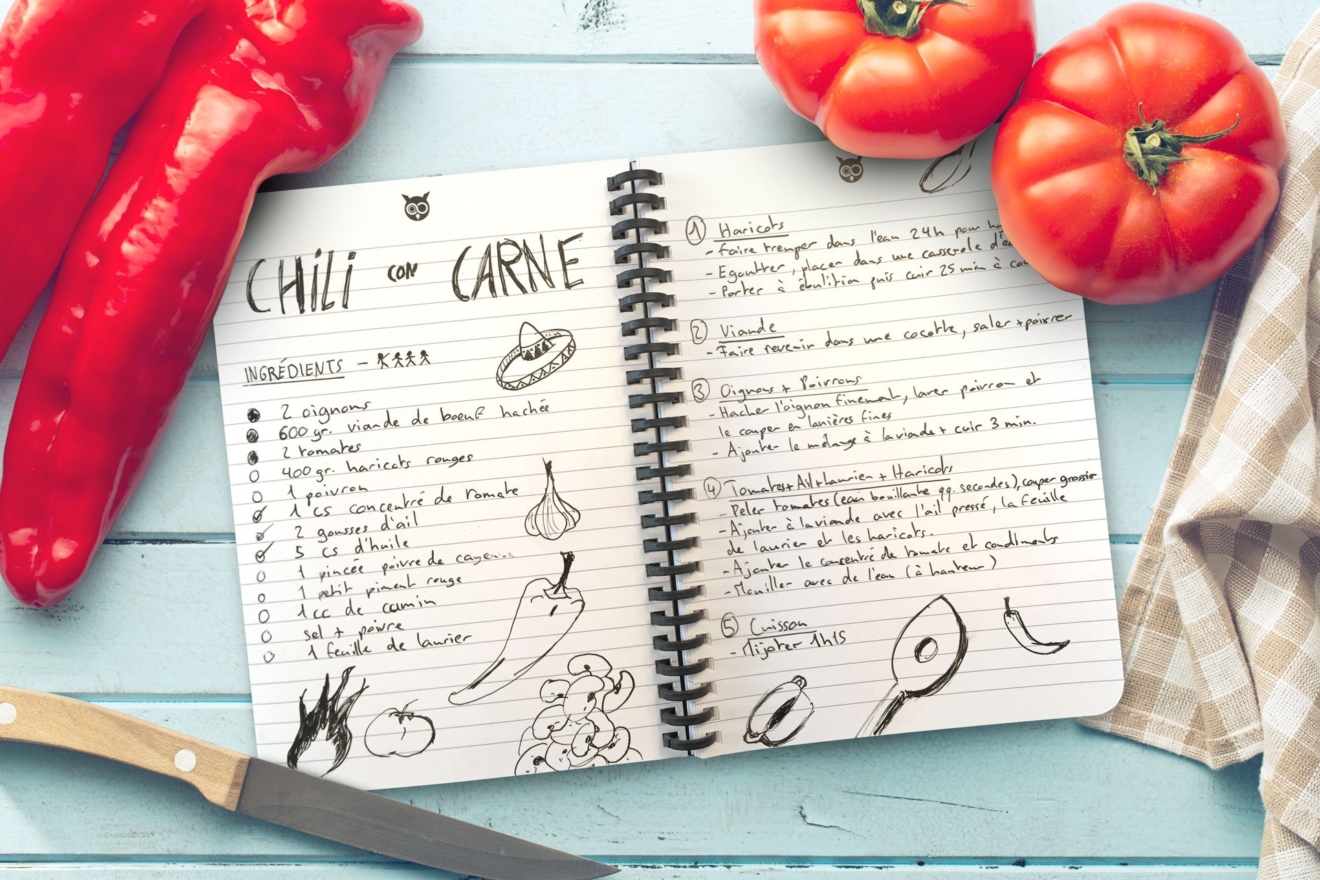 CHILI CON CARNE
INGRÉDIENTS -
2 oignons
600 gr. viande de boeuf hachée
2 tomates
400 gr. haricots rouges
1 poivron
1 cs concentré de tomate
2 gousses d'ail
5 cs d'huile
1 pincée poivre de cayenne
1 petit piment rouge
1 cc de cumin
sel + poivre
1 feuille de laurier
1 Haricots
- Faire tremper dans l'eau 24h pour
- Egoutter, placer dans une casserole
- Porter à ébulition puis cuir 25 min à
2 Viande
- Faire revenir dans une cocotte, saler + poivrer
3 Oignons + Poivrons
- Hacher l'oignon finement, laver poivron et
le couper en lanières fines
- Ajouter le mélange à la viande + cuir 3 min.
4 Tomates + Ail + Laurier + Haricots
- Peler tomates (eau bouillante qq. secondes), couper grossier
- Ajouter à la viande avec l'ail pressé, la feuille
de laurier et les haricots.
- Ajouter le concentré de tomate et condiments
- Mouiller avec de l'eau (à hauteur)
5 Cuisson
- Mijoter 1h15